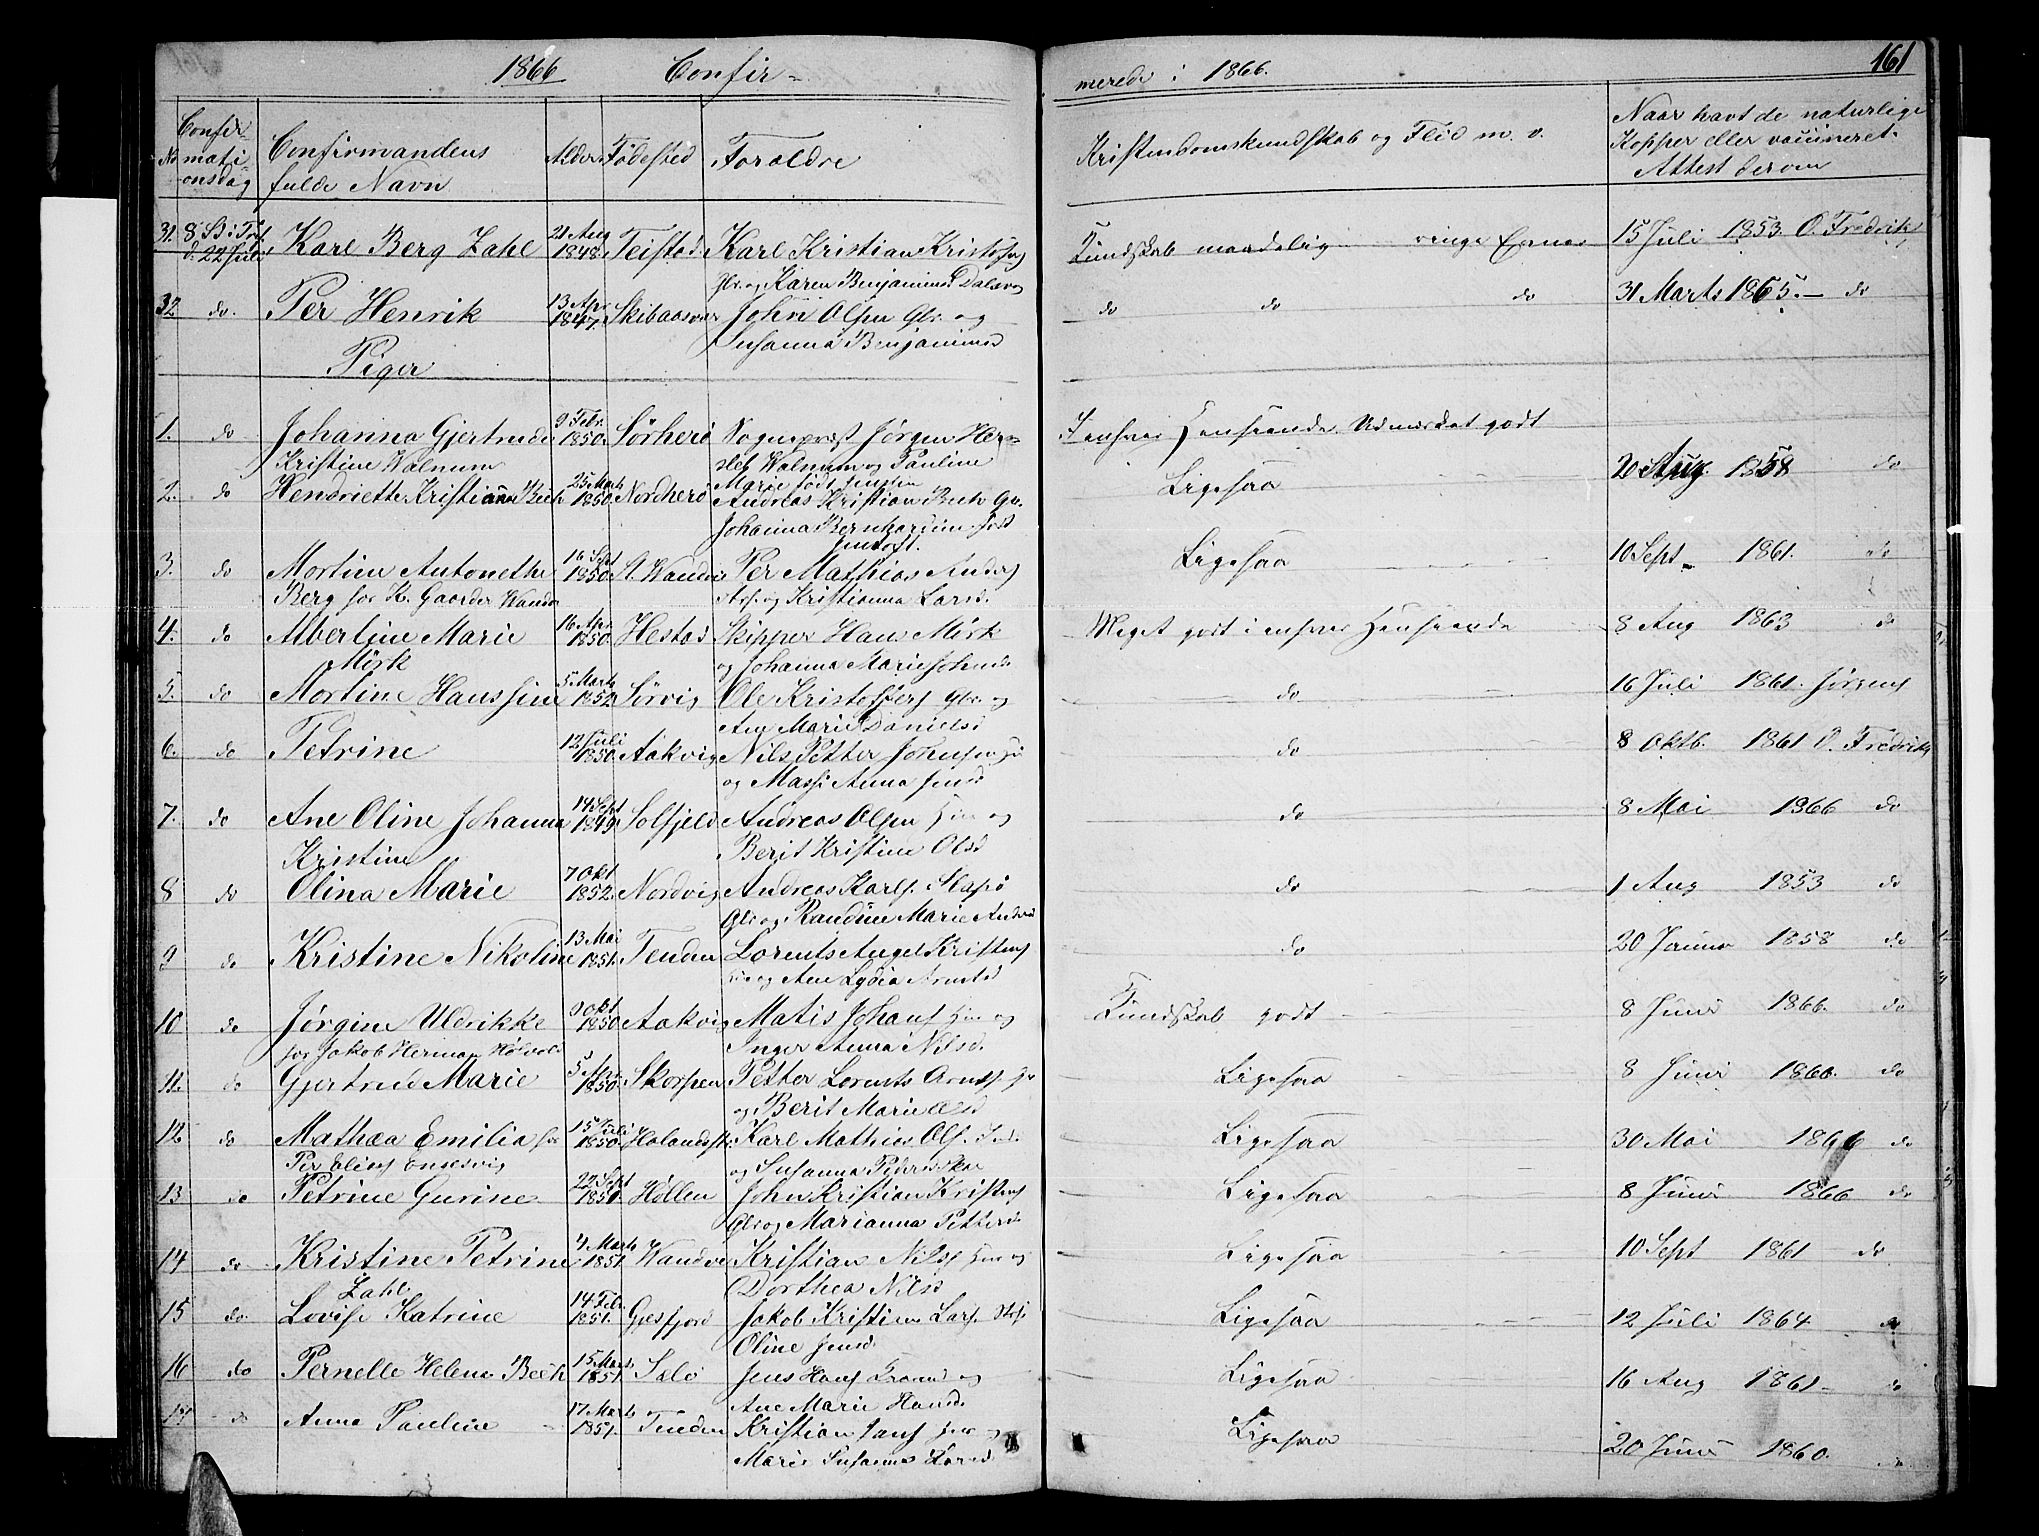 1866 Confir-
merede i 1866. 161
No Confir-
mati
onsdag
Confirmandens
fulde Navn
Alder Fødested Foraldre
Kristendomskundskab og Flid m. v.
Naar havt de naturlige
Kopper eller vaccineret.
Attest derom
31. 8. S. i Tref. d. 22 Juli Karl Berg Zahl 21 Aug 1848 Teistad Karl Kristian Kristoffers
Gbr. og Karen Benjaminsd Dalsvog
Kundskab maadelig ringe Evner 15 Juli 1853 O. Fredrik
32 do. Per Henrik 13 Apr. 1847 Skibaasvær John Olsen Gbr. og
Susanna Benjaminsd
do do do 31 Marts 1865. - do
Piger
1. do Johanna Gjertrude 9 Febr. 1850. Sörherö Sognepræst Jørgen Her-
Kristine Walnum
sleb Walnum og Pauline
Marie født Jensen
I enhver Henseende Udmerket godt
2. do Hendriette Kristianna Bech 25 Marts 1850. Nordherö Andreas Kristian Bech Gbr.
Johanna Bernhardine født
Ligesaa 20 Aug. 1858 do
3. do Mortine Antonette 16 Sept 1850. N. Wandve Per Mathias Anders
Berg hos K. Gaarder Wandve
og Kristianna Larsd.
Ligesaa 10 Sept 1861. do
4. do Albertine Marie 16 Apr. 1850. Hestad Skipper Hans Mörk
Mörk
og Johanna Marie Johnsd
Meget godt i enhver Henseende 8 Aug 1863 do
5. do Mortine Hanssine 5 Marts 1852 Sørvig Ole Kristoffers Gbr. og
Ane Marie Danielsd
do 16 Juli 1861. Jörgens
6. do Petrine 12 Juli 1850. Aakvig Nils Petter Johnsen
og Massi Anna Jensd
do 8 Oktb. 1861 O. Fredrik
7. do Ane Oline Johanna 14 Sept 1849 Solfjeld Andreas Olsen Hm og
Kristine
Berit Kristine Olsd
do 8 Mai 1866 do
8 do Olina Marie 7 Okt 1852. Nordvig Andreas Karls.
Gbr og Randine Marie Andersd
do 1 Aug 1853 do
9 do Kristine Nikoline 13 Mai 1851. Tenden Lorents Angel Kristens
og Ane Lydia Arntsd
do 20 Januar 1858 do
10 do Jørgine Uldrikke 9 Okt 1850 Aakvig Matis Johans Hm og
hos Jakob Herman Holvold
Inger Anna Nilsd.
Kundskab godt 8 Juni 1866. do
11. do Gjertrud Marie 5 Apr. 1850. Skorpen Petter Lorents Arnts.
og Berit Marie Olsd
Ligesaa 8 Juni 1866. do
12 do Mathæa Emilia hos 15 Juli 1850. Karl Mathias Ols.
Per Elias
og Susanna Pedersd
Ligesaa 30 Mai 1866 do
13 do Petrine Gurine 22 Sept 1850. Høllen John Kristian Kristens
Gbr og Marianna Pettersd
Ligesaa 8 Juni 1866 do
14 do Kristine Petrine 4 Marts 1851. Wandve Kristian Nils Hm og
Zahl
Dorthea Nilsd
Ligesaa 10 Sept 1861 do
15 do. Lovise Katrine 14 Febr. 1851. Gjesfjord Jakob Kristian Lars.
Oline Jensd
Ligesaa 12 Juli 1864
16 do Pernelle Helene Bech 15 Marts 1851 Salö Jens Hans og
Ane Marie Hansd
Ligesaa 16 Aug 1861 do
17 do Anna Pauline 17 Marts 1851. Tenden Kristian Hm og
Marie Susanna Larsd
Ligesaa 20 Juni 1860. do